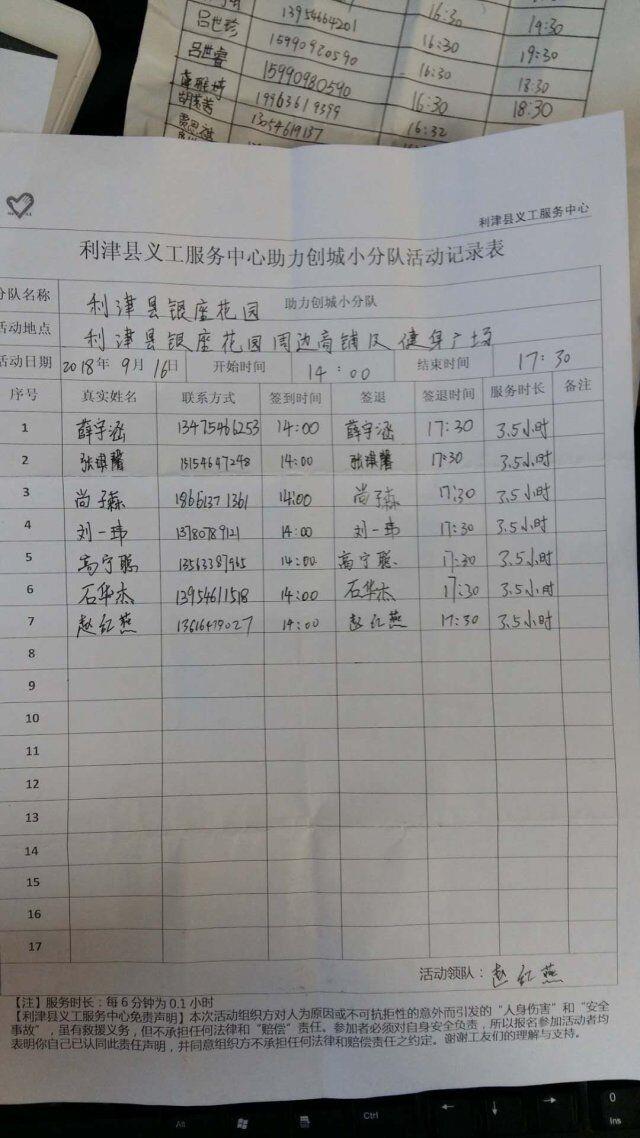 吕世珍 13954664201 16:30 19:30
吕世睿 15990920590 16:30 19:30
15990980590 16:30 18:30
19963619399 16:30 18:30
13054619137 16:32
利津县义工服务中心
利津县义工服务中心助力创城小分队活动记录表
分队名称 利津县银座花园 助力创城小分队
活动地点 利津县银座花园周边商铺及健身广场
活动日期 2018年9月16日 开始时间 14:00 结束时间 17:30
序号 真实姓名 联系方式 签到时间 签退 签退时间 服务时长 备注
1 薛宇涵 13475466253 14:00 薛宇涵 17:30 3.5小时
2 张琪馨 15154647248 14:00 张琪馨 17:30 3.5小时
3 尚子森 18661371361 14:00 尚子森 17:30 3.5小时
4 刘一玮 13780789121 14:00 刘一玮 17:30 3.5小时
5 高宁聪 13563387965 14:00 高宁聪 17:30 3.5小时
6 石华杰 13954611518 14:00 石华杰 17:30 3.5小时
7 赵红燕 13616479027 14:00 赵红燕 17:30 3.5小时
8
9
10
11
12
13
14
15
16
17
活动领队：赵红燕
【注】服务时长：每6分钟为0.1小时
【利津县义工服务中心免责声明】本次活动组织方对人为原因或不可抗拒性的意外而引发的“人身伤害”和“安全
事故”，虽有救援义务，但不承担任何法律和“赔偿”责任。参加者必须对自身安全负责，所以报名参加活动者均
表明你自己已认同此责任声明，并同意组织方不承担任何法律和赔偿责任之约定。谢谢工友们的理解与支持。
Alt Ctrl 0
Ins